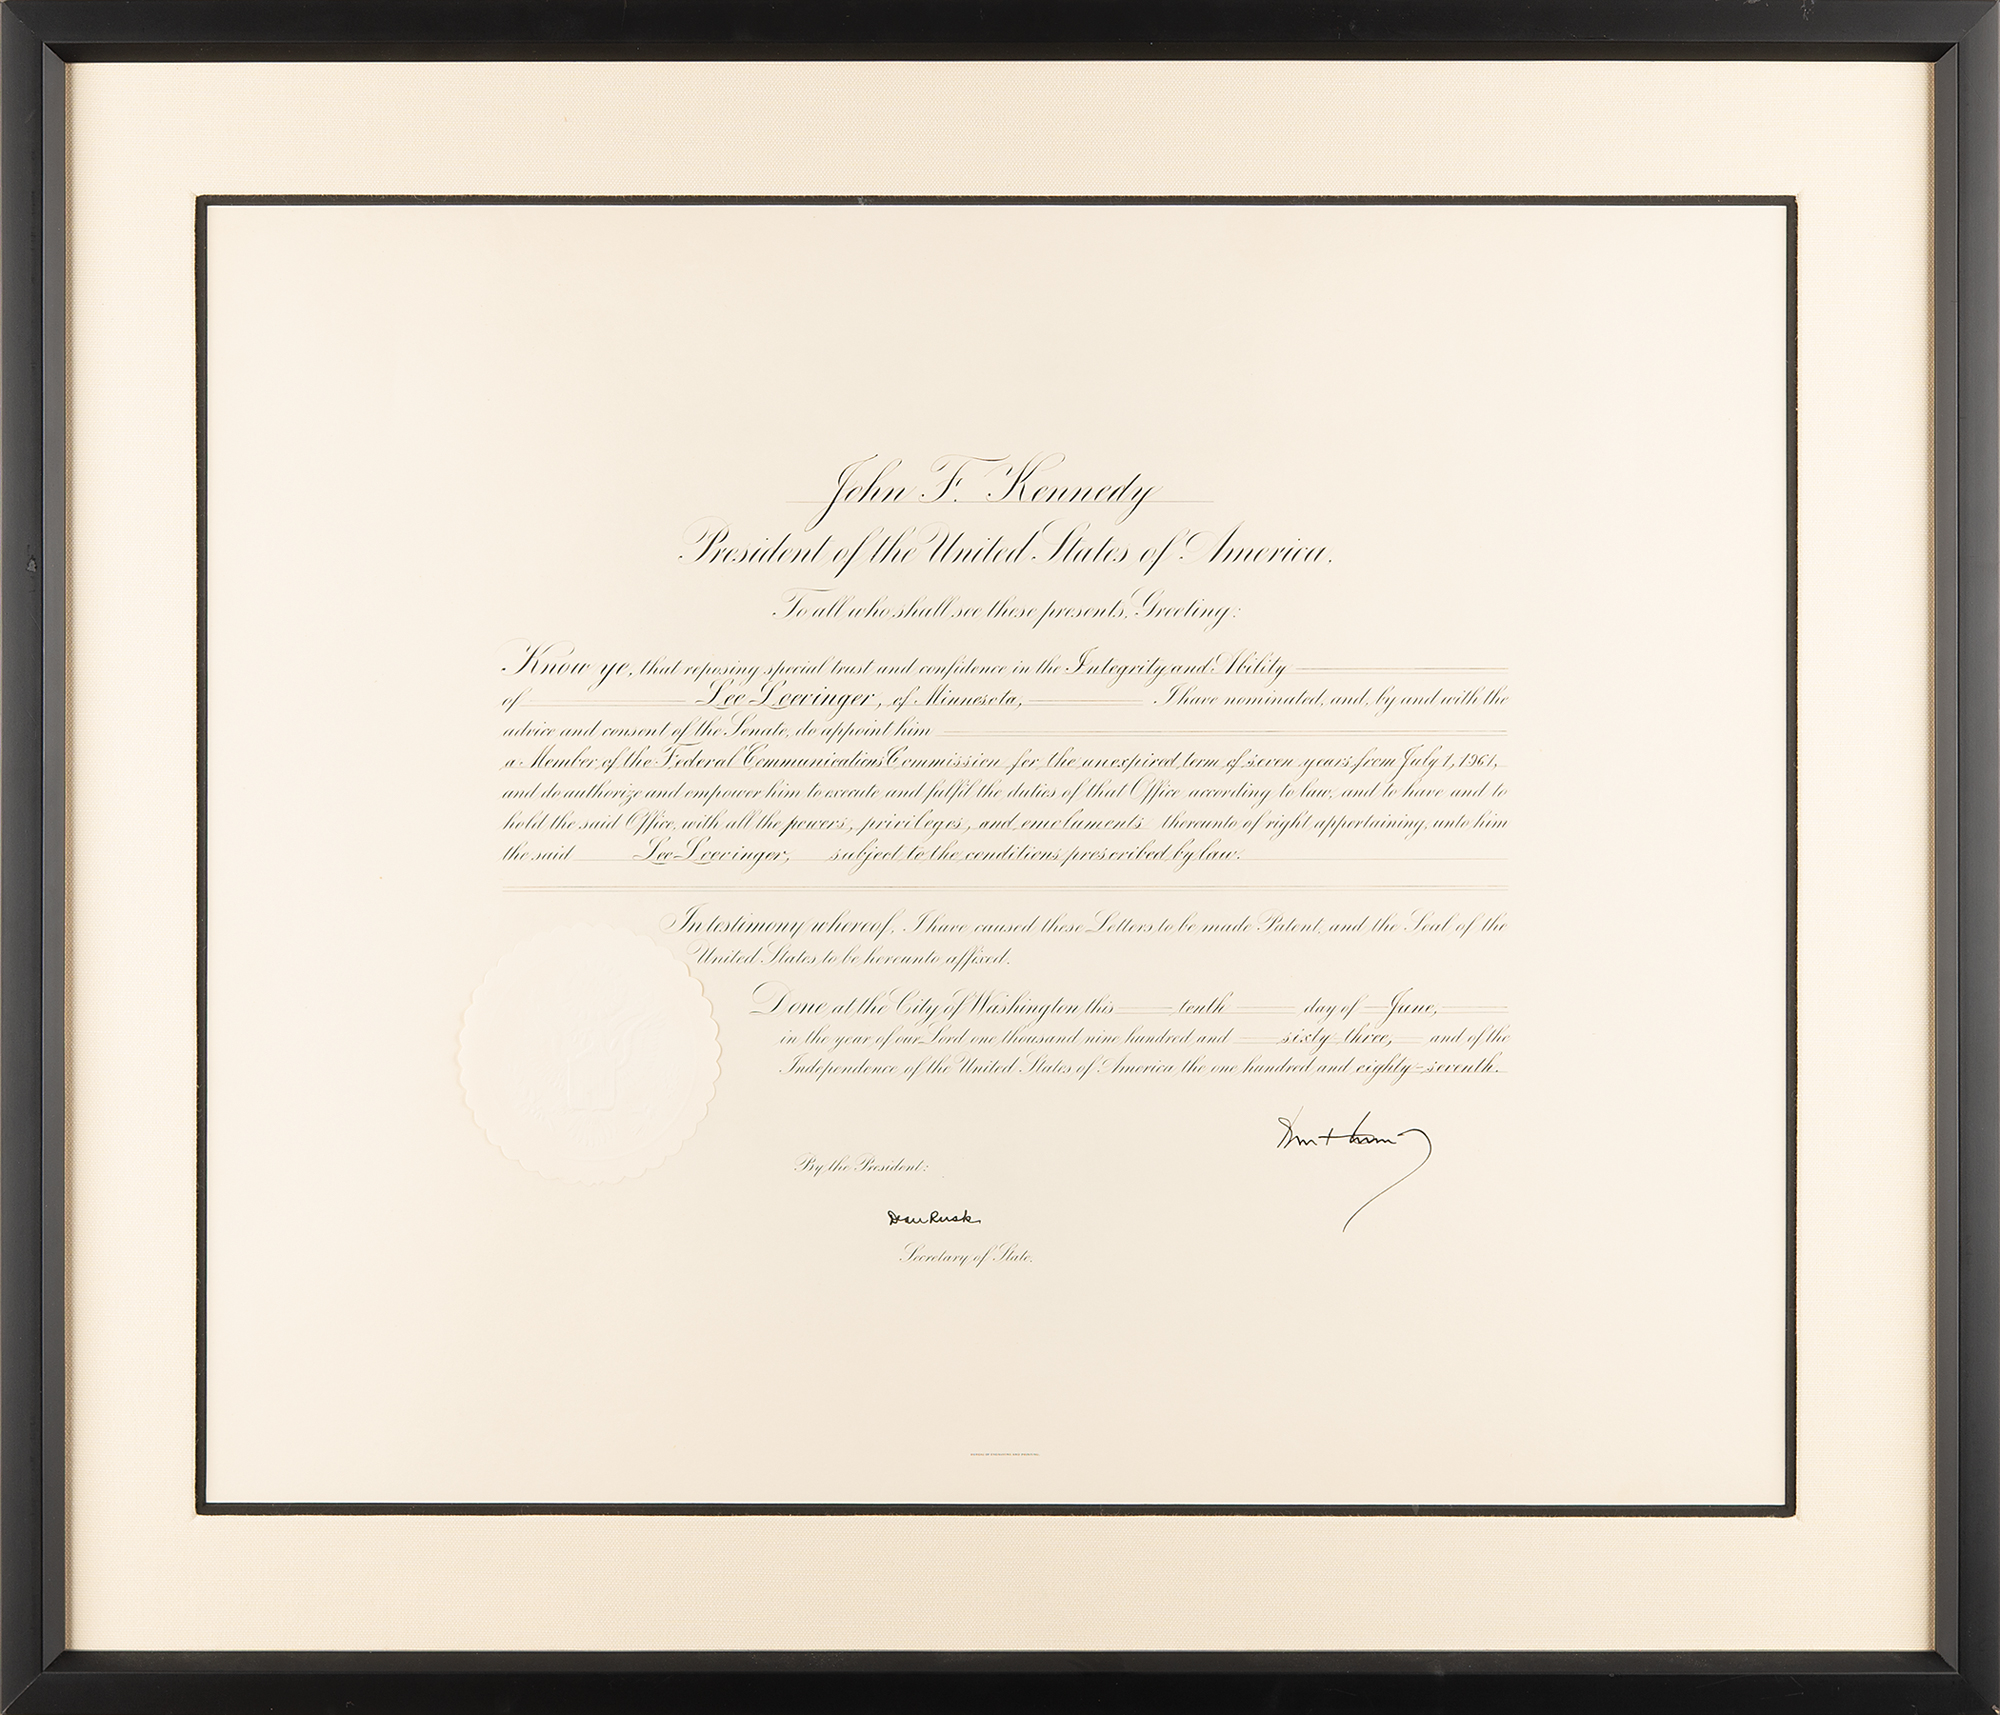 John F. Kennedy
President of the United States of America.
To all who shall see these presents, Greeting:
Know ye, that reposing special trust and confidence in the Integrity and Ability
of Lee Loevinger, of Minnesota, I have nominated, and, by and with the
advice and consent of the Senate, do appoint him
a Member of the Federal Communications Commission for the unexpired term of seven years from July 1, 1961,
and do authorize and empower him to execute and fulfil the duties of that Office according to law, and to have and to
hold the said Office, with all the powers, privileges, and emoluments thereunto of right appertaining, unto him
the said Lee Loevinger, subject to the conditions prescribed by law.
In testimony whereof, I have caused these Letters to be made Patent, and the Seal of the
United States to be hereunto affixed.
Done at the City of Washington this tenth day of June,
in the year of our Lord one thousand nine hundred and sixty-three, and of the
Independence of the United States of America the one hundred and eighty-seventh.
By the President:
Dean Rusk
Secretary of State.